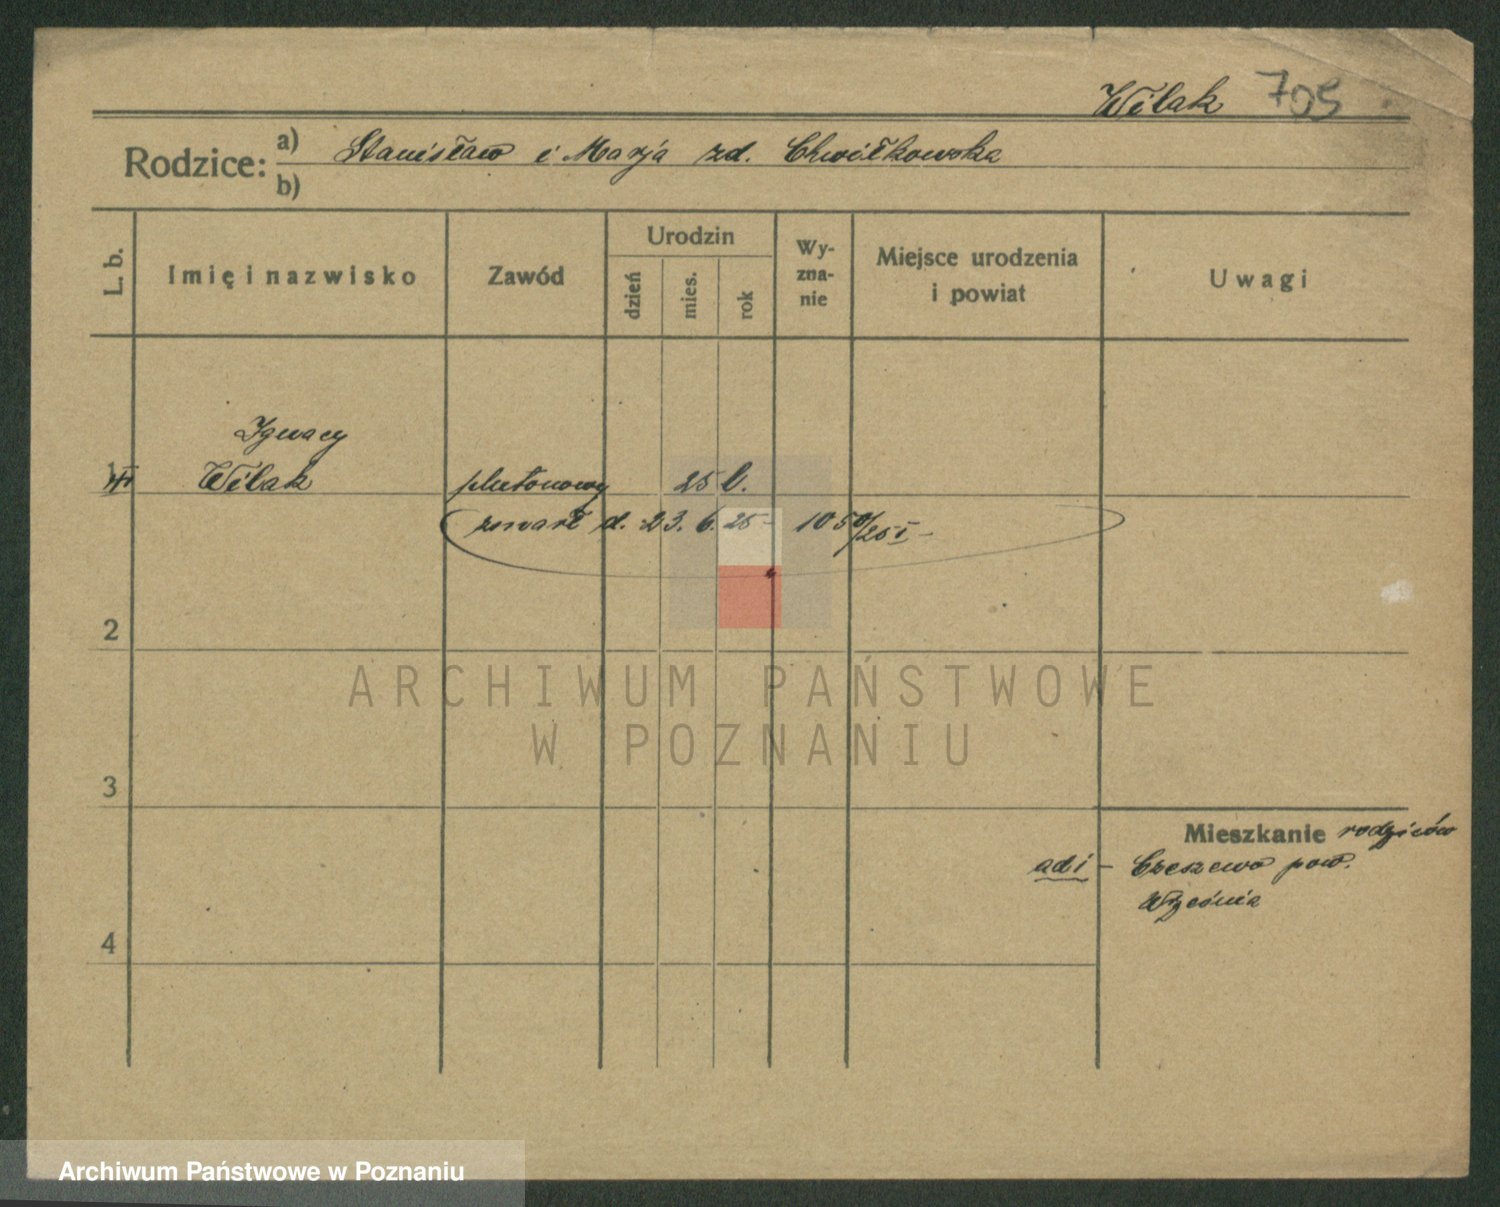 Wilak 705
Rodzice: a) Stanisław i Marja zd. Chwiłkowska
b)
L. b.
Imię i nazwisko
Zawód
Urodzin
dzień
mies.
rok
Wy-
zna-
nie
Miejsce urodzenia
i powiat
Uwagi
Ignacy
1 Wilak plutonowy 25 l.
zmarł d. 23. 6. 25 1050/25 I -
2
3
4
Mieszkanie rodziców
ad 1 - Czeszewo pow.
Września
ARCHIWUM PAŃSTWOWE
W POZNANIU
Archiwum Państwowe w Poznaniu